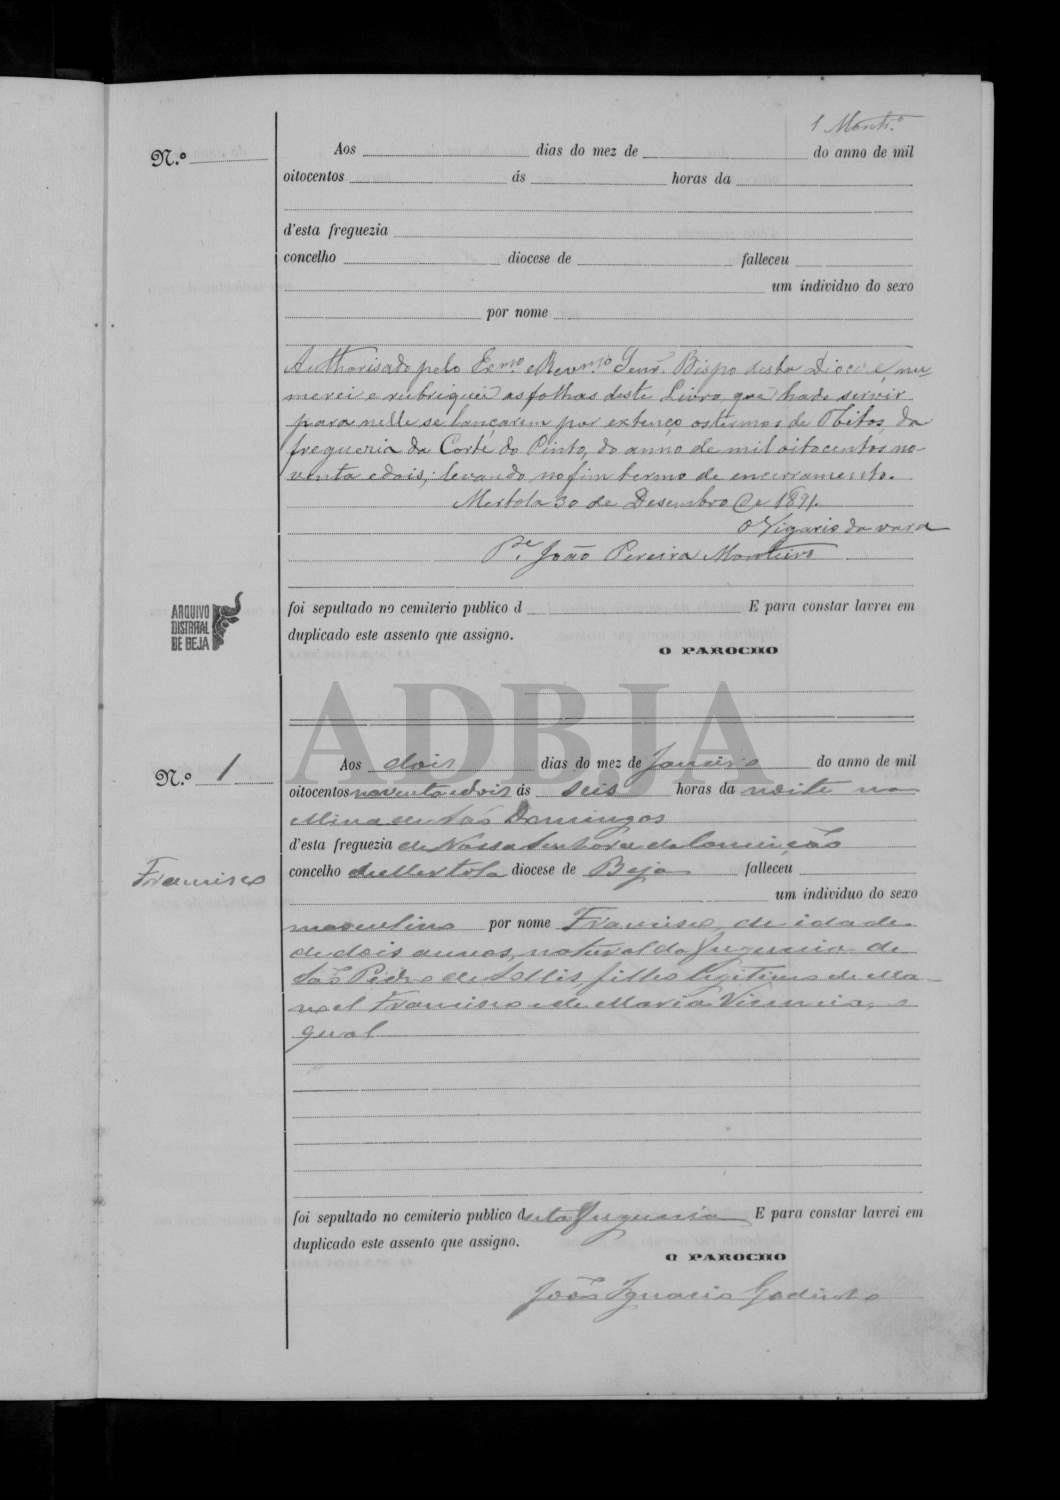 1 Montrº
N.º Aos dias do mez de do anno de mil
oitocentos ás horas da
d'esta freguezia
concelho diocese de falleceu
um individuo do sexo
por nome
Authorisado pelo Exmo. e Revmo. Senr. Bispo desta Diocese, nu-
merei e rubriquei as folhas deste Livro, que hade servir
para nelle se lançarem por extenço os termos de Obitos, da
freguezia da Corte do Pinto, do anno de mil oitocentos no-
venta e dois; levando no fim termo de encerramento.
Mertola 30 de Desembro de 1891.
O Vigario da vara
Pe. João Pereira Monteiro
foi sepultado no cemiterio publico d E para constar lavrei em
duplicado este assento que assigno.
O PAROCHO
ARQUIVO
DISTRITAL
DE BEJA
ADBJA
N.º 1 Aos dois dias do mez de Janeiro do anno de mil
oitocentos noventa e dois ás seis horas da noite na
Mina de São Domingos
d'esta freguezia de Nossa Senhora da Conceição
Francisco
concelho de Mertola diocese de Beja falleceu
um individuo do sexo
masculino por nome Francisco, de idade
de dois annos, natural da freguezia de
São Pedro de Sollis, filho legitimo de Ma-
noel Francisco e de Maria Vicencia, o
qual
foi sepultado no cemiterio publico desta freguezia E para constar lavrei em
duplicado este assento que assigno.
O PAROCHO
João Ignacio Godinho